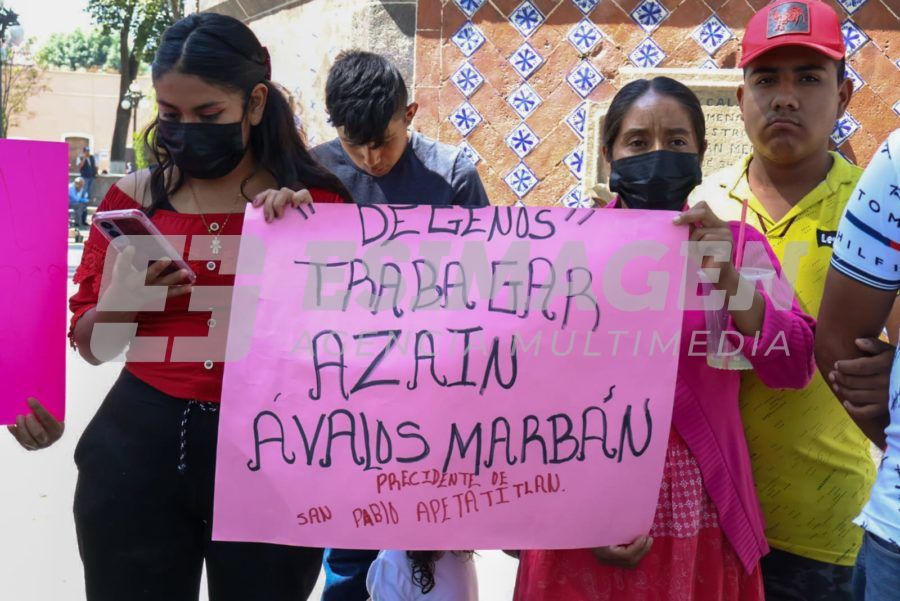 " DEGENOS "
TRABAGAR
AZAIN
ÁVALOS MARBÁN
PRECIDENTE DE
SAN PABLO APETATITLAN.
ESIMAGEN
AGENCIA MULTIMEDIA
TOMMY
HILFI